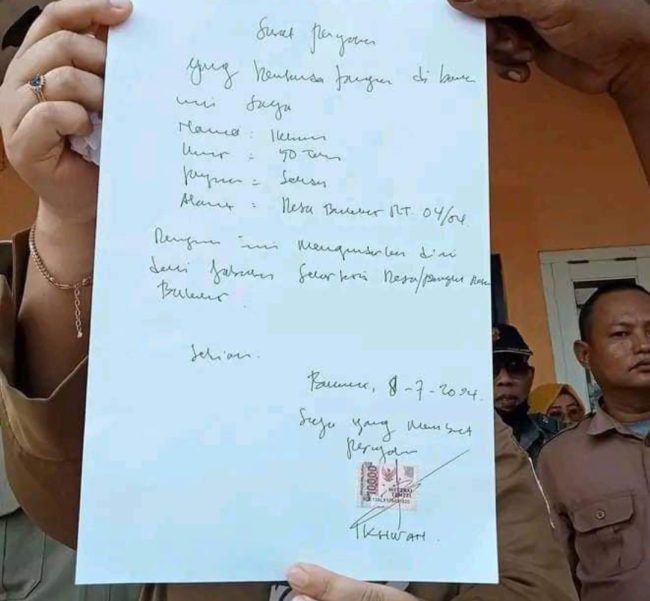 Surat pernyataan
yang bertanda tangan di bawah
ini saya
Nama : Ikhwan
Umur : 50 Tahun
: Sekdes
Alamat : Desa RT. 04/04
Dengan ini mengundurkan diri
dari Jabatan Sekertaris Desa/perangkat Desa
Sekian.
8-7-2024.
Saya yang membuat
pernyataan
10000
METERAI
TEMPEL
IKHWAN.